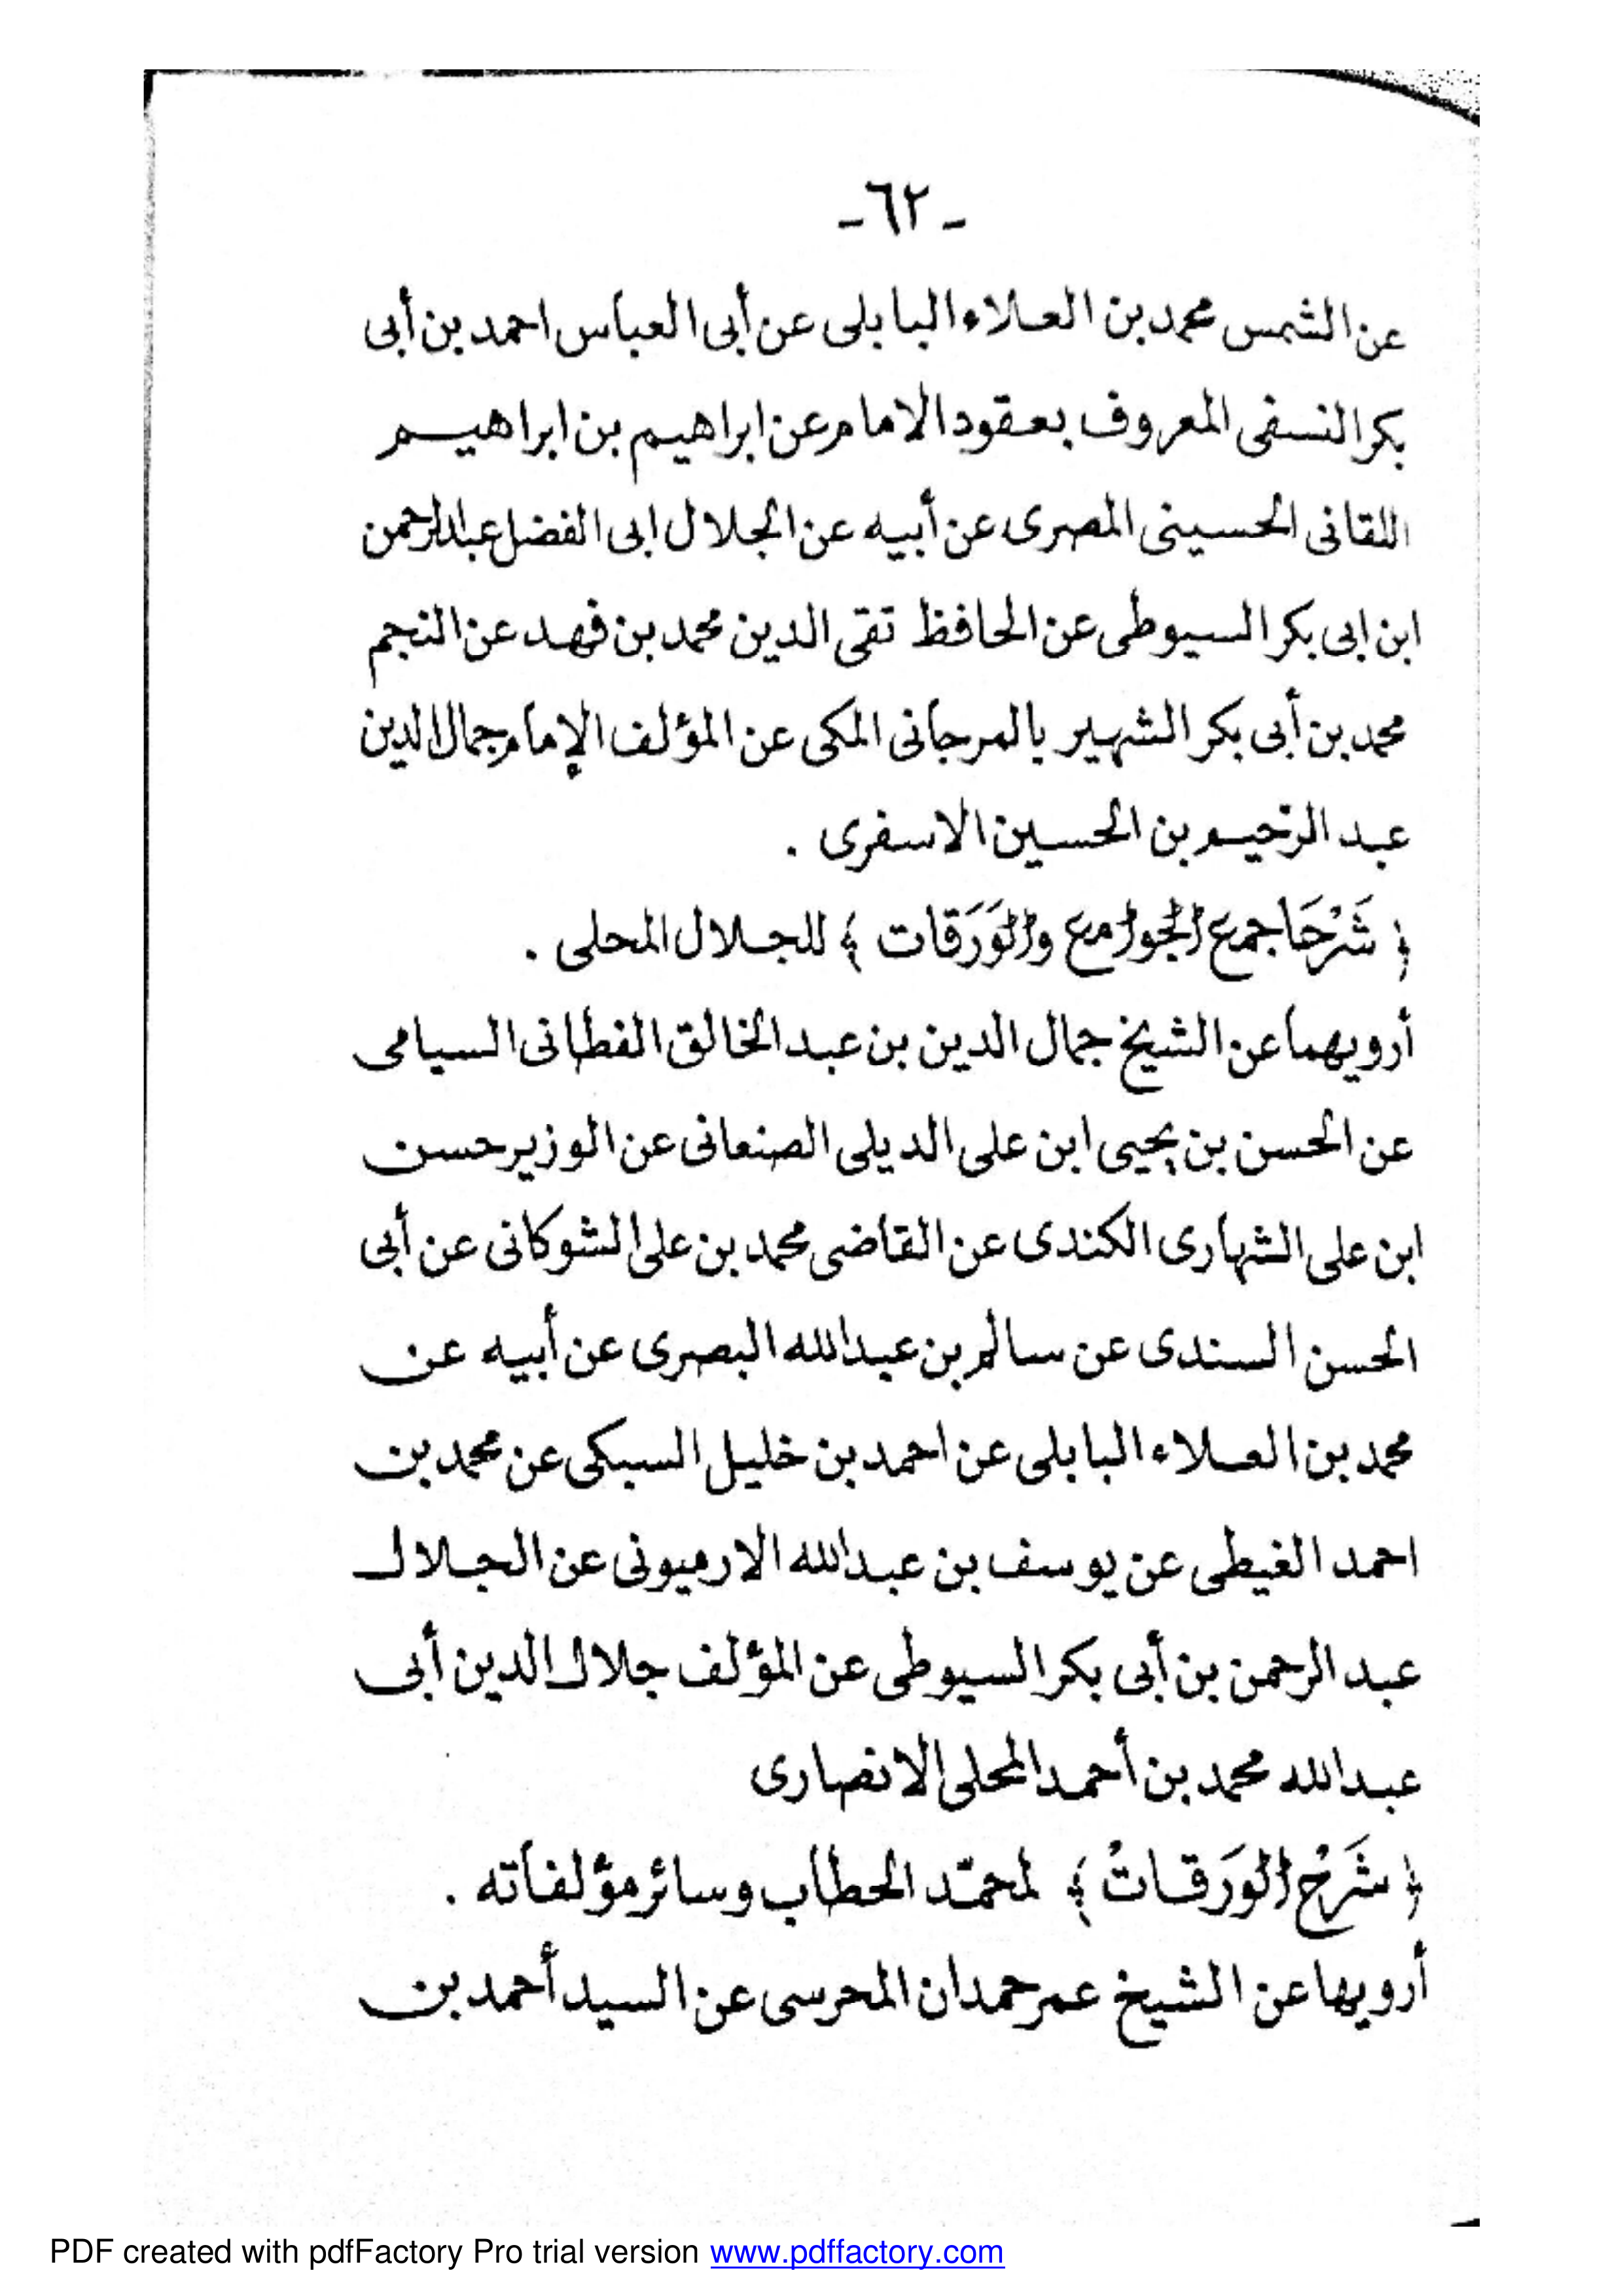 -٦٢-
عن الشمس محمد بن العلاء البابلى عن أبى العباس احمد بن أبى
بكر النسفى المعروف بعقود الامام عن ابراهيم بن ابراهيم
اللقانى الحسينى المصرى عن أبيه عن الجلال ابى الفضل عبد الرحمن
ابن ابى بكر السيوطى عن الحافظ تقى الدين محمد بن فهد عن النجم
محمد بن أبى بكر الشهير بالمرجانى المكى عن المؤلف الإمام جمال الدين
عبد الرحيم بن الحسين الاسفرى .
﴿ شَرْحَا جمع الجوامع والوَرَقات ﴾ للجلال المحلى .
أرويهما عن الشيخ جمال الدين بن عبد الخالق الفطانى السيامى
عن الحسن بن يحيى ابن على الديلى الصنعانى عن الوزير حسن
ابن على الشهارى الكندى عن القاضى محمد بن على الشوكانى عن أبى
الحسن السندى عن سالم بن عبد الله البصرى عن أبيه عن
محمد بن العلاء البابلى عن احمد بن خليل السبكى عن محمد بن
احمد الغيطى عن يوسف بن عبد الله الارميونى عن الجلال
عبد الرحمن بن أبى بكر السيوطى عن المؤلف جلال الدين أبى
عبد الله محمد بن أحمد المحلى الانصارى
﴿ شَرْحُ الوَرَقاتْ ﴾ لمحمّد الحطاب وسائر مؤلفاته .
أرويها عن الشيخ عمر حمدان المحرسى عن السيد أحمد بن
PDF created with pdfFactory Pro trial version www.pdffactory.com